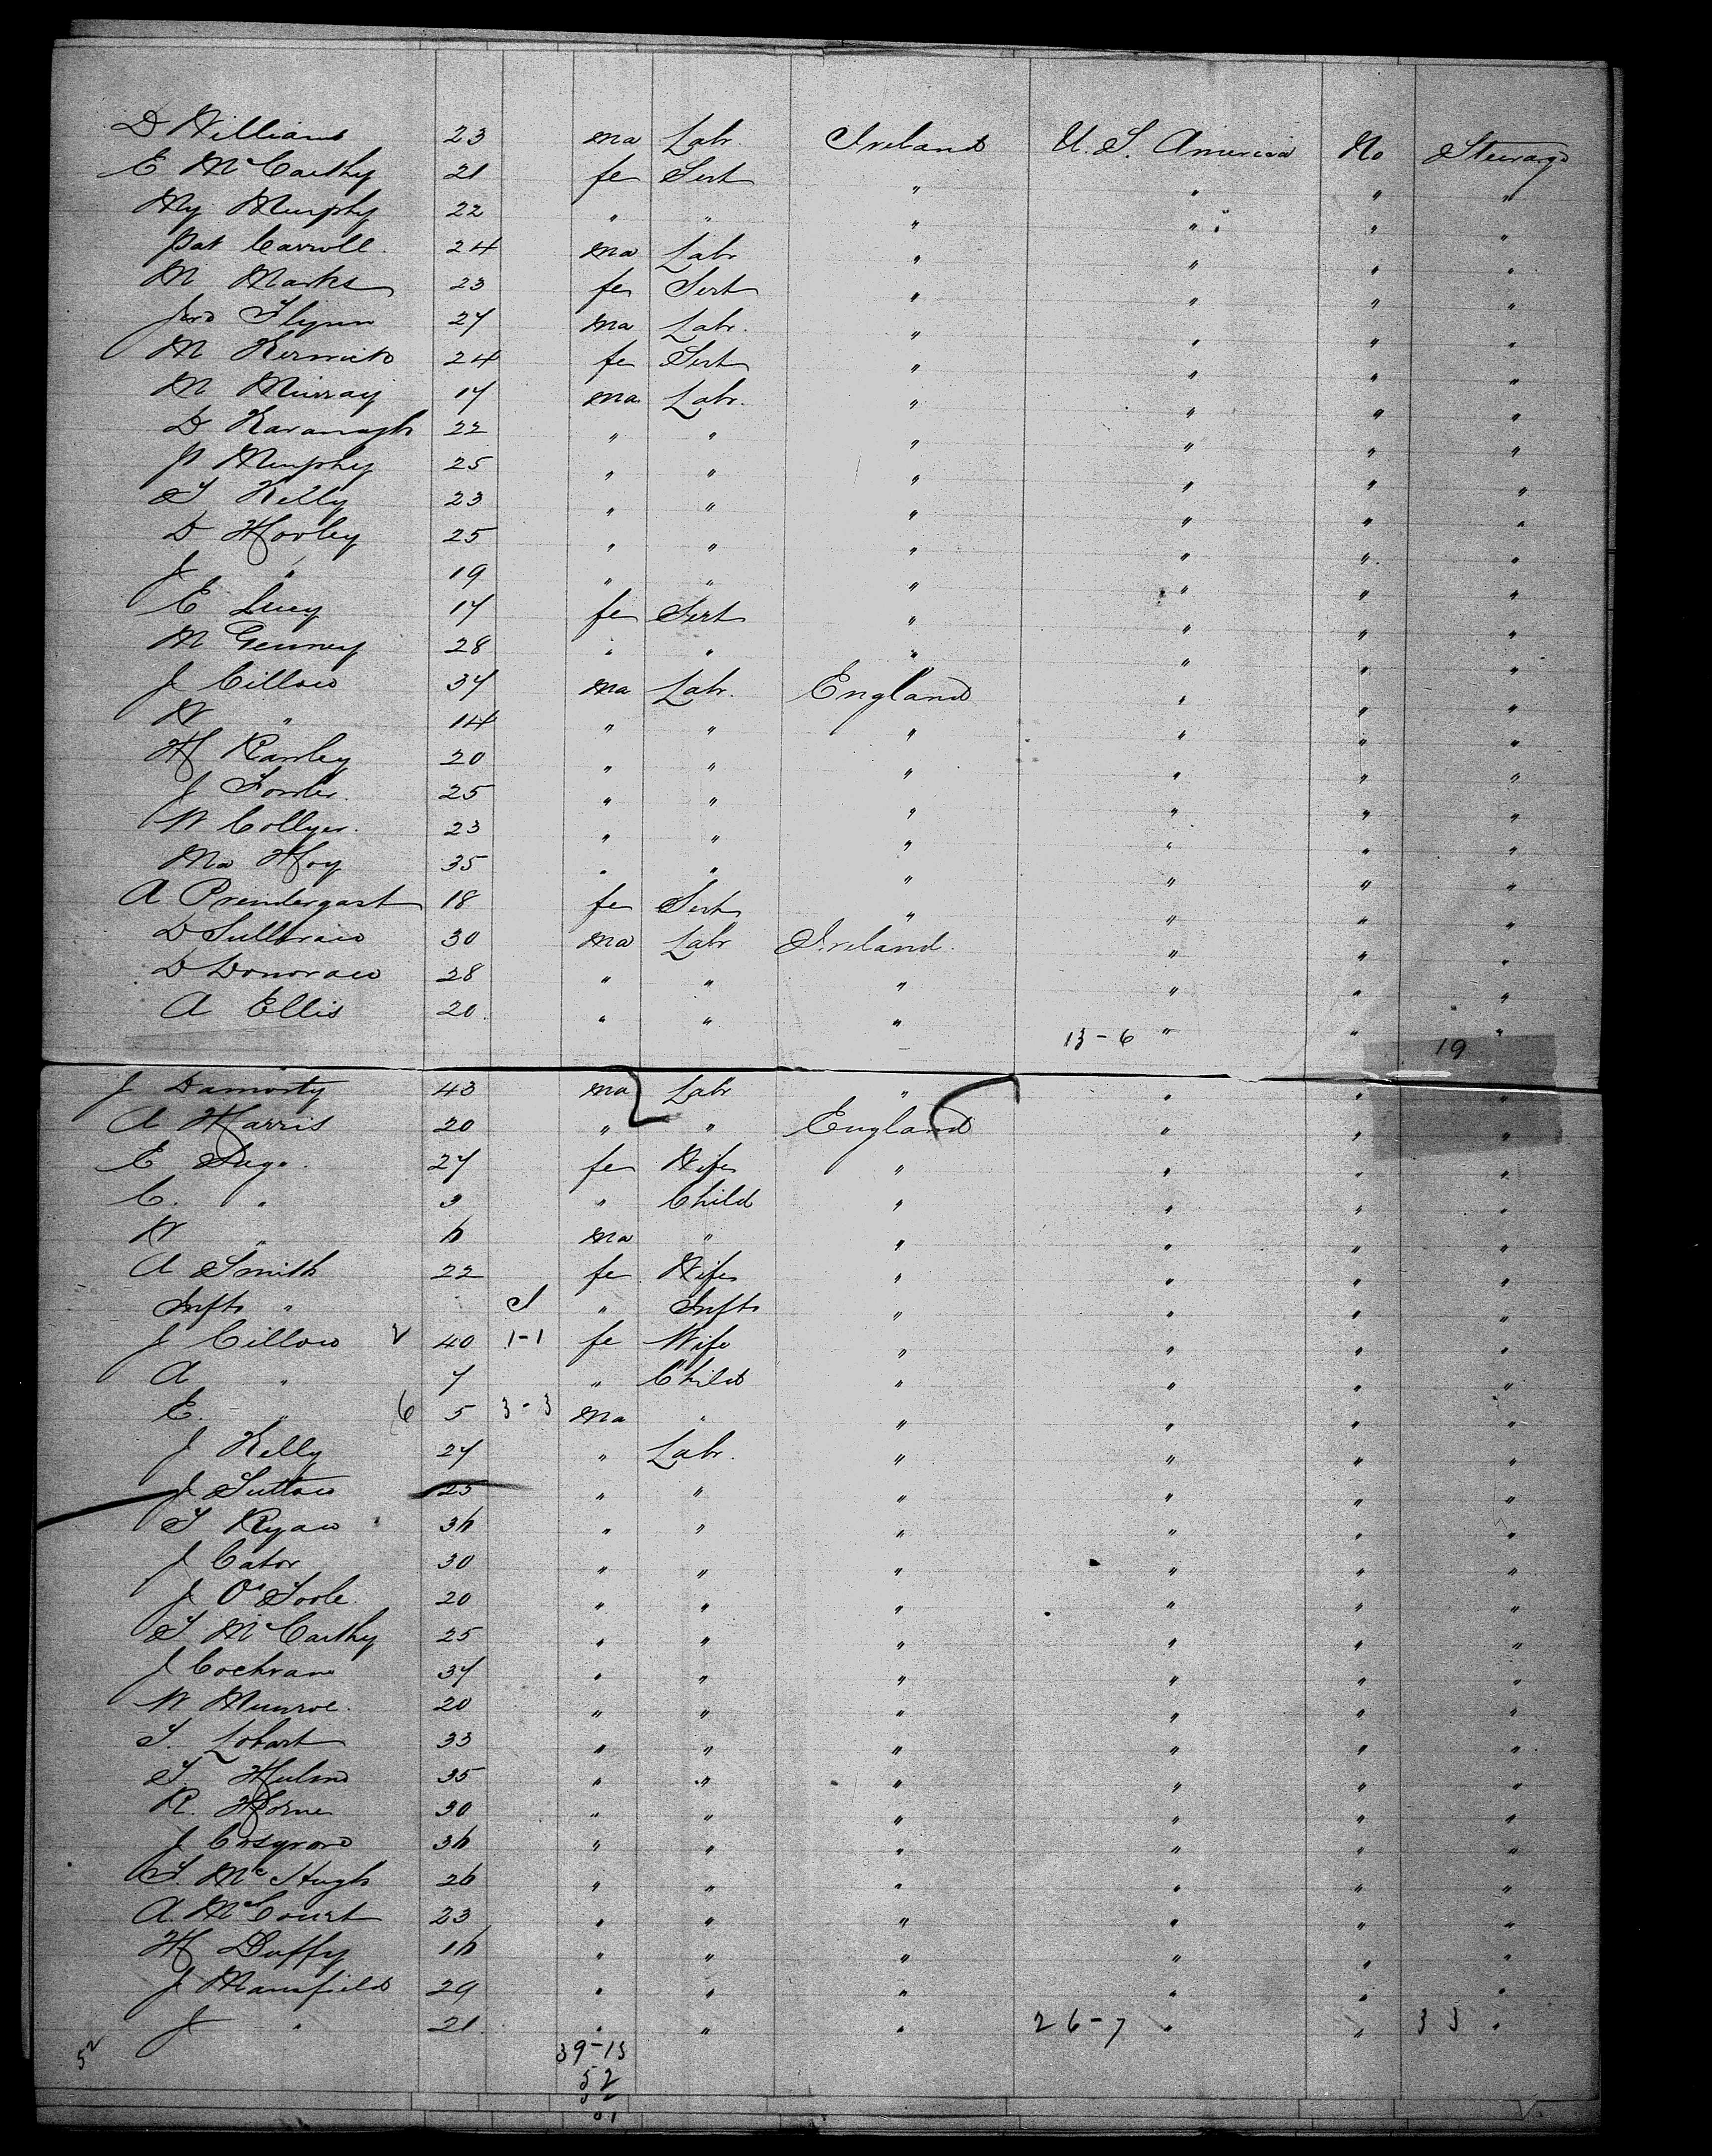 D Williams 23 ma Labr. Ireland U. S. America No Steerage
E McCarthy 21 fe Sert " " " "
My Murphy 22 " " " " " "
Pat Carroll. 24 ma Labr " " " "
M Marks 23 fe Sert " " " "
Flynn 27 ma Labr. " " " "
M 24 fe Sert " " " "
M Murray 17 ma Labr. " " " "
D Kavanagh 22 " " " " " "
P Murphy 25 " " " " " "
T Kelly 23 " " " " " "
D Horley 25 " " " " " "
J " 19 " " " " " "
E Lucy 17 fe Sert " " " "
M 28 " " " " " "
J Cillow 37 ma Labr. England " " "
W " 14 " " " " " "
H Rawley 20 " " " " " "
J Fowler. 25 " " " " " "
W Collyer. 23 " " " " " "
Ma Hoy 35 " " " " " "
A Prendergast 18 fe Sert " " " "
D Sullivan 30 ma Labr Ireland. " " "
D Donovan 28 " " " " " "
A Ellis 20. " " " " " "
13-6 19
J 43 ma Labr " " " "
A Harris 20 " " England " " "
E 27 fe Wife " " " "
C. " 3 " Child " " " "
W " 6 ma " " " " "
A Smith 22 fe Wife " " " "
Infts " " Infts " " " "
J Cillow 40 1-1 fe Wife " " " "
A " 7 " Child " " " "
E. " 6 5 3-3 ma " " " " "
J Kelly 27 " Labr. " " " "
J Sutton 25 " " " " " "
T Ryan 36 " " " " " "
J Cator 30 " " " " " "
J O'Toole. 20 " " " " " "
T McCarthy 25 " " " " " "
J Cochrane 37 " " " " " "
W Munroe. 20 " " " " " "
T. 33 " " " " " "
T. Hulme 35 " " " " " "
R. Horne 30 " " " " " "
J Cosgrove 36 " " " " " "
T. McHugh 26 " " " " " "
A. McCourt 23 " " " " " "
H Duffy 16 " " " " " "
J Mansfield 29 " " " " " "
J " 21. " " " 26-7 " " 33 "
52 39-13
52